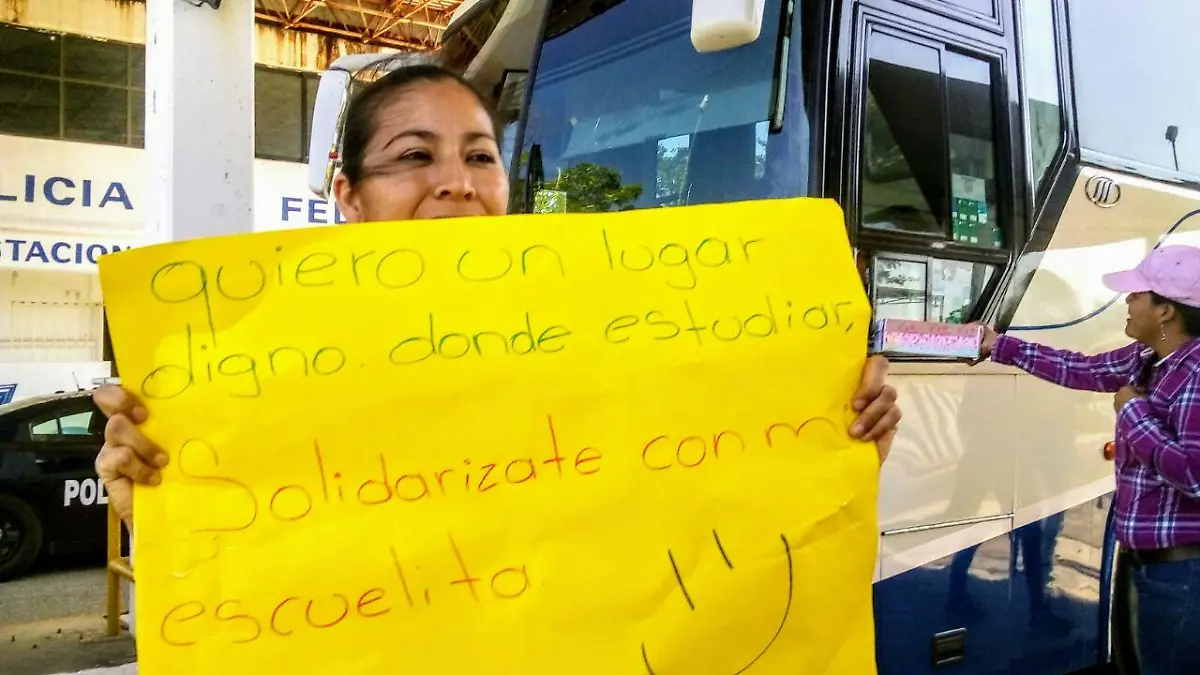 LICIA
FED
STACION
POL
quiero un lugar
digno. donde estudiar,
Solidarizate con mi
escuelita.